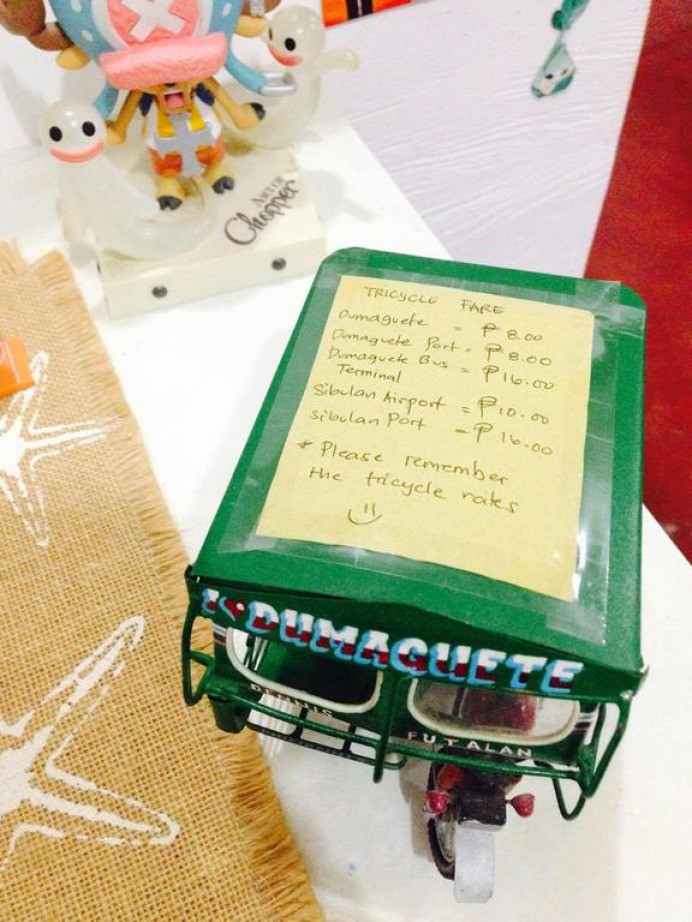 ART OF
Chopper
TRICYCLE FARE
Dumaguete = ₱ 8.00
Dumaguete Port = ₱ 8.00
Dumaguete Bus = ₱16.00
Terminal
Sibulan Airport = ₱10.00
Sibulan Port = ₱ 16.00
* Please remember
the tricycle rates
I ♥ DUMAGUETE
DENNIS
FUTALAN